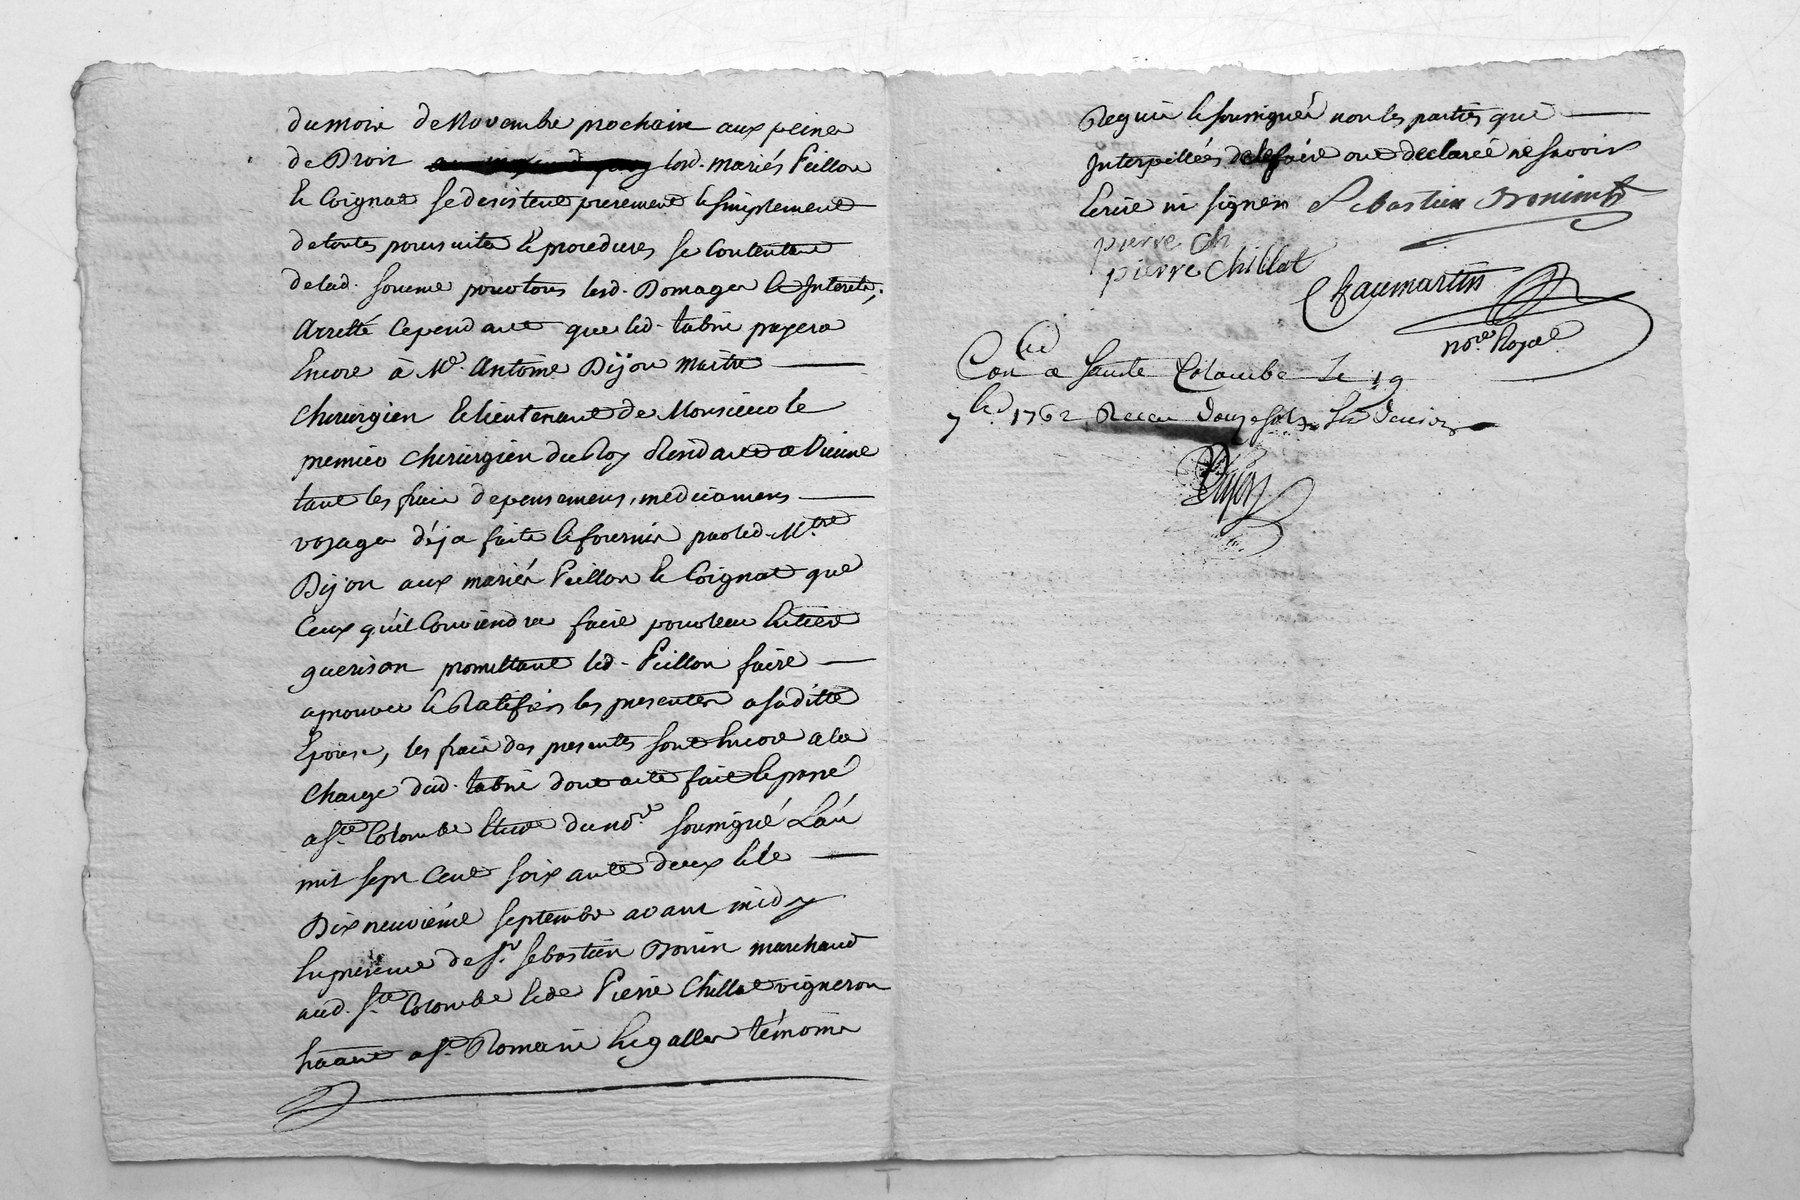 du mois de Novembre prochain aux peines
de Droit lesd. mariés Peillon
et Coignat se desistent purement et simplement
de toutes poursuites et procedures se Contentant
de lad. somme pour tous lesd. Domages et Interets,
arretté Cependant que led. tabrie payera
Encore à Me. Antoine Dijon maitre
chirurgien et lieutenant de Monsieur le
premier chirurgien du Roy Residant a Vienne
tant les frais de pensemens, medicamens
voyages déja faits et fournis par led. Mtre
Dijon aux mariés Peillon et Coignat que
Ceux qu'il Conviendra faire pour leur Entiere
guerison promettant led. Peillon faire
aprouver et Ratifier les presentes a sa ditte
Epouse, les frais des presentes sont Encore a la
Charge dud. tabrie dont acte fait et passé
a Ste. Colombe Etude du nore. soussigné L'an
mil sept Cent soixante deux et le
Dix neuvième septembre avant midy
En presence de Sr. Sebastien Bonin marchand
aud. Ste. Colombe et de Pierre Chillat vigneron
hant a St. Romain En galles témoins
Requis et soussignés non les parties qui
Interpellées de le faire ont declaré ne sçavoir
Ecrire ni signer Sebastien Bonin
pierre Ch
pierre Chillat
Chaumartin
nore. Royal
Con lé a Sainte Colombe Le 19
7bre. 1762 Reçeu douze sols six deniers
Dijon